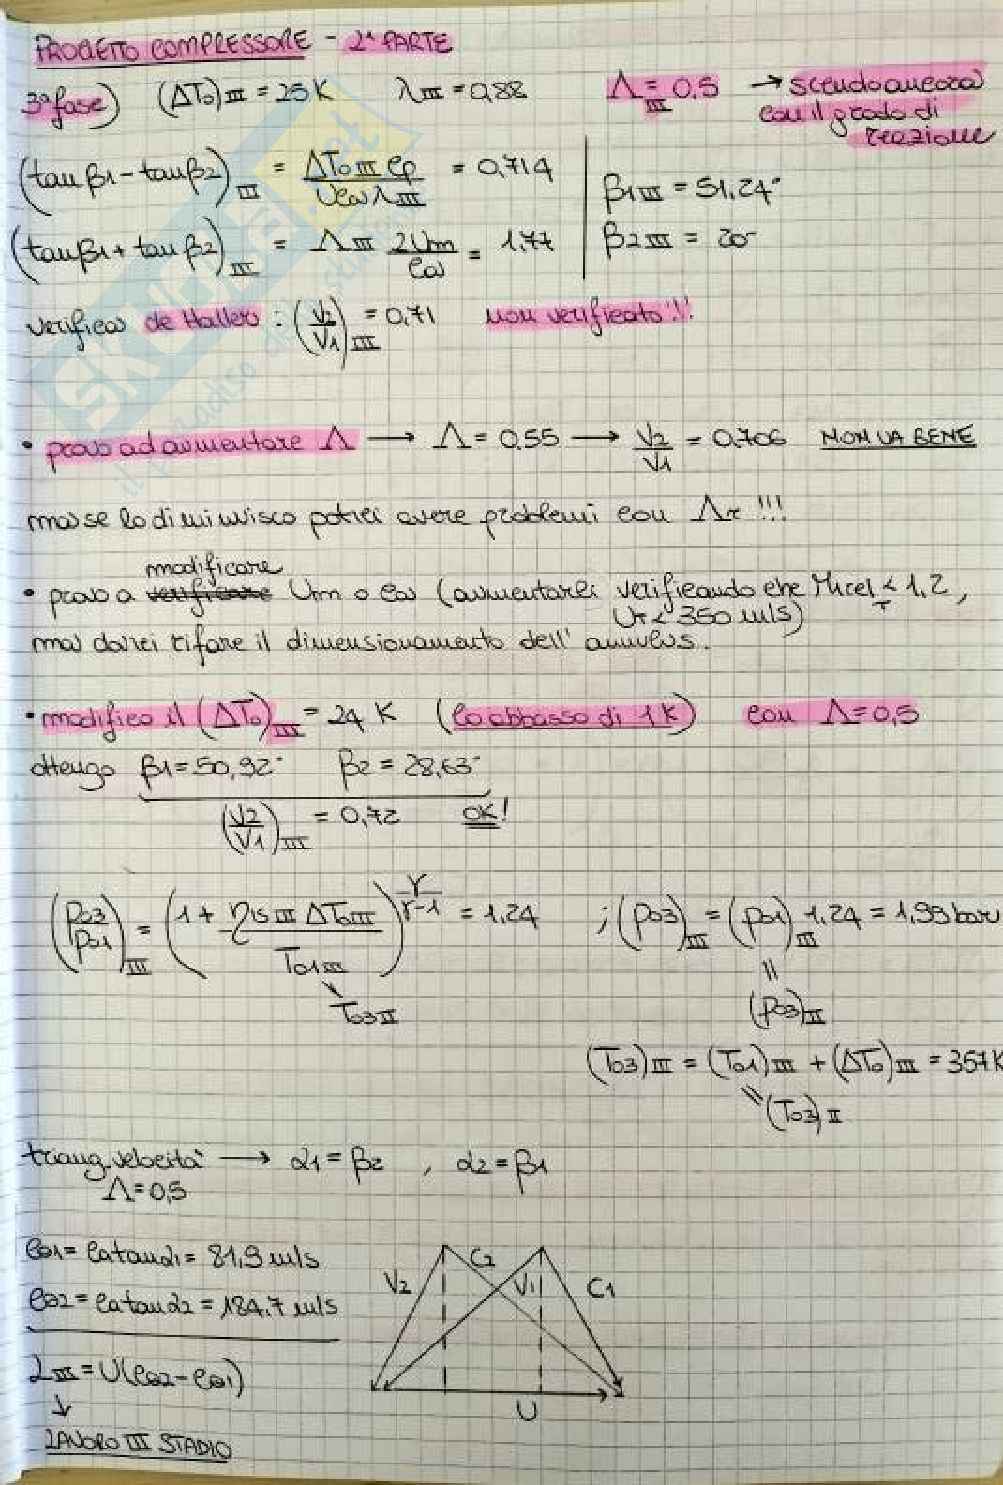 PROGETTO COMPRESSORE - 2ª PARTE
3ª fase) (ΔT₀)III = 25 K λIII = 0,88 ΛIII = 0.5 → scendo ancora
con il grado di
reazione
(tanβ1 - tanβ2)III = ΔT₀III cp / U ca λIII = 0,714 | β1III = 51,24°
(tanβ1 + tanβ2)III = ΛIII 2Um / ca = 1.77 | β2III = 20°
verifica de Haller: (V2/V1)III = 0,71 non verificato!!
• provo ad aumentare Λ → Λ = 0.55 → V2/V1 = 0.706 NON VA BENE
ma se lo diminuisco potrei avere problemi con Λr !!!
modificare
• provo a verificare Um o ca (aumentarli verificando che Mrel T < 1,2,
UT < 350 m/s)
ma dovrei rifare il dimensionamento dell'annulus.
• modifico il (ΔT₀)III = 24 K (lo abbasso di 1K) con Λ=0,5
ottengo β1 = 50,92° β2 = 28,63°
(V2/V1)III = 0,72 OK!
(p03/p01)III = (1 + ηis III ΔT₀III / T01III)^(γ/γ-1) = 1,24 ; (p03)III = (p01)III 1,24 = 1,99 bar
T03II
= (p03)II
(T03)III = (T01)III + (ΔT₀)III = 357 K
= (T03)II
triang. velocità → α1 = β2 , α2 = β1
Λ=0,5
cθ1 = ca tanα1 = 81,9 m/s
cθ2 = ca tanα2 = 184.7 m/s
V2 C2 V1 C1
U
LIII = U(cθ2 - cθ1)
↓
LAVORO III STADIO